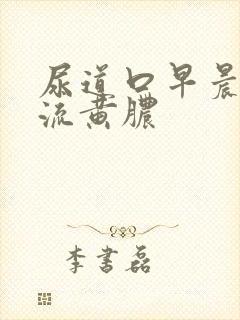 尿道口早晨
流黄脓
李书磊